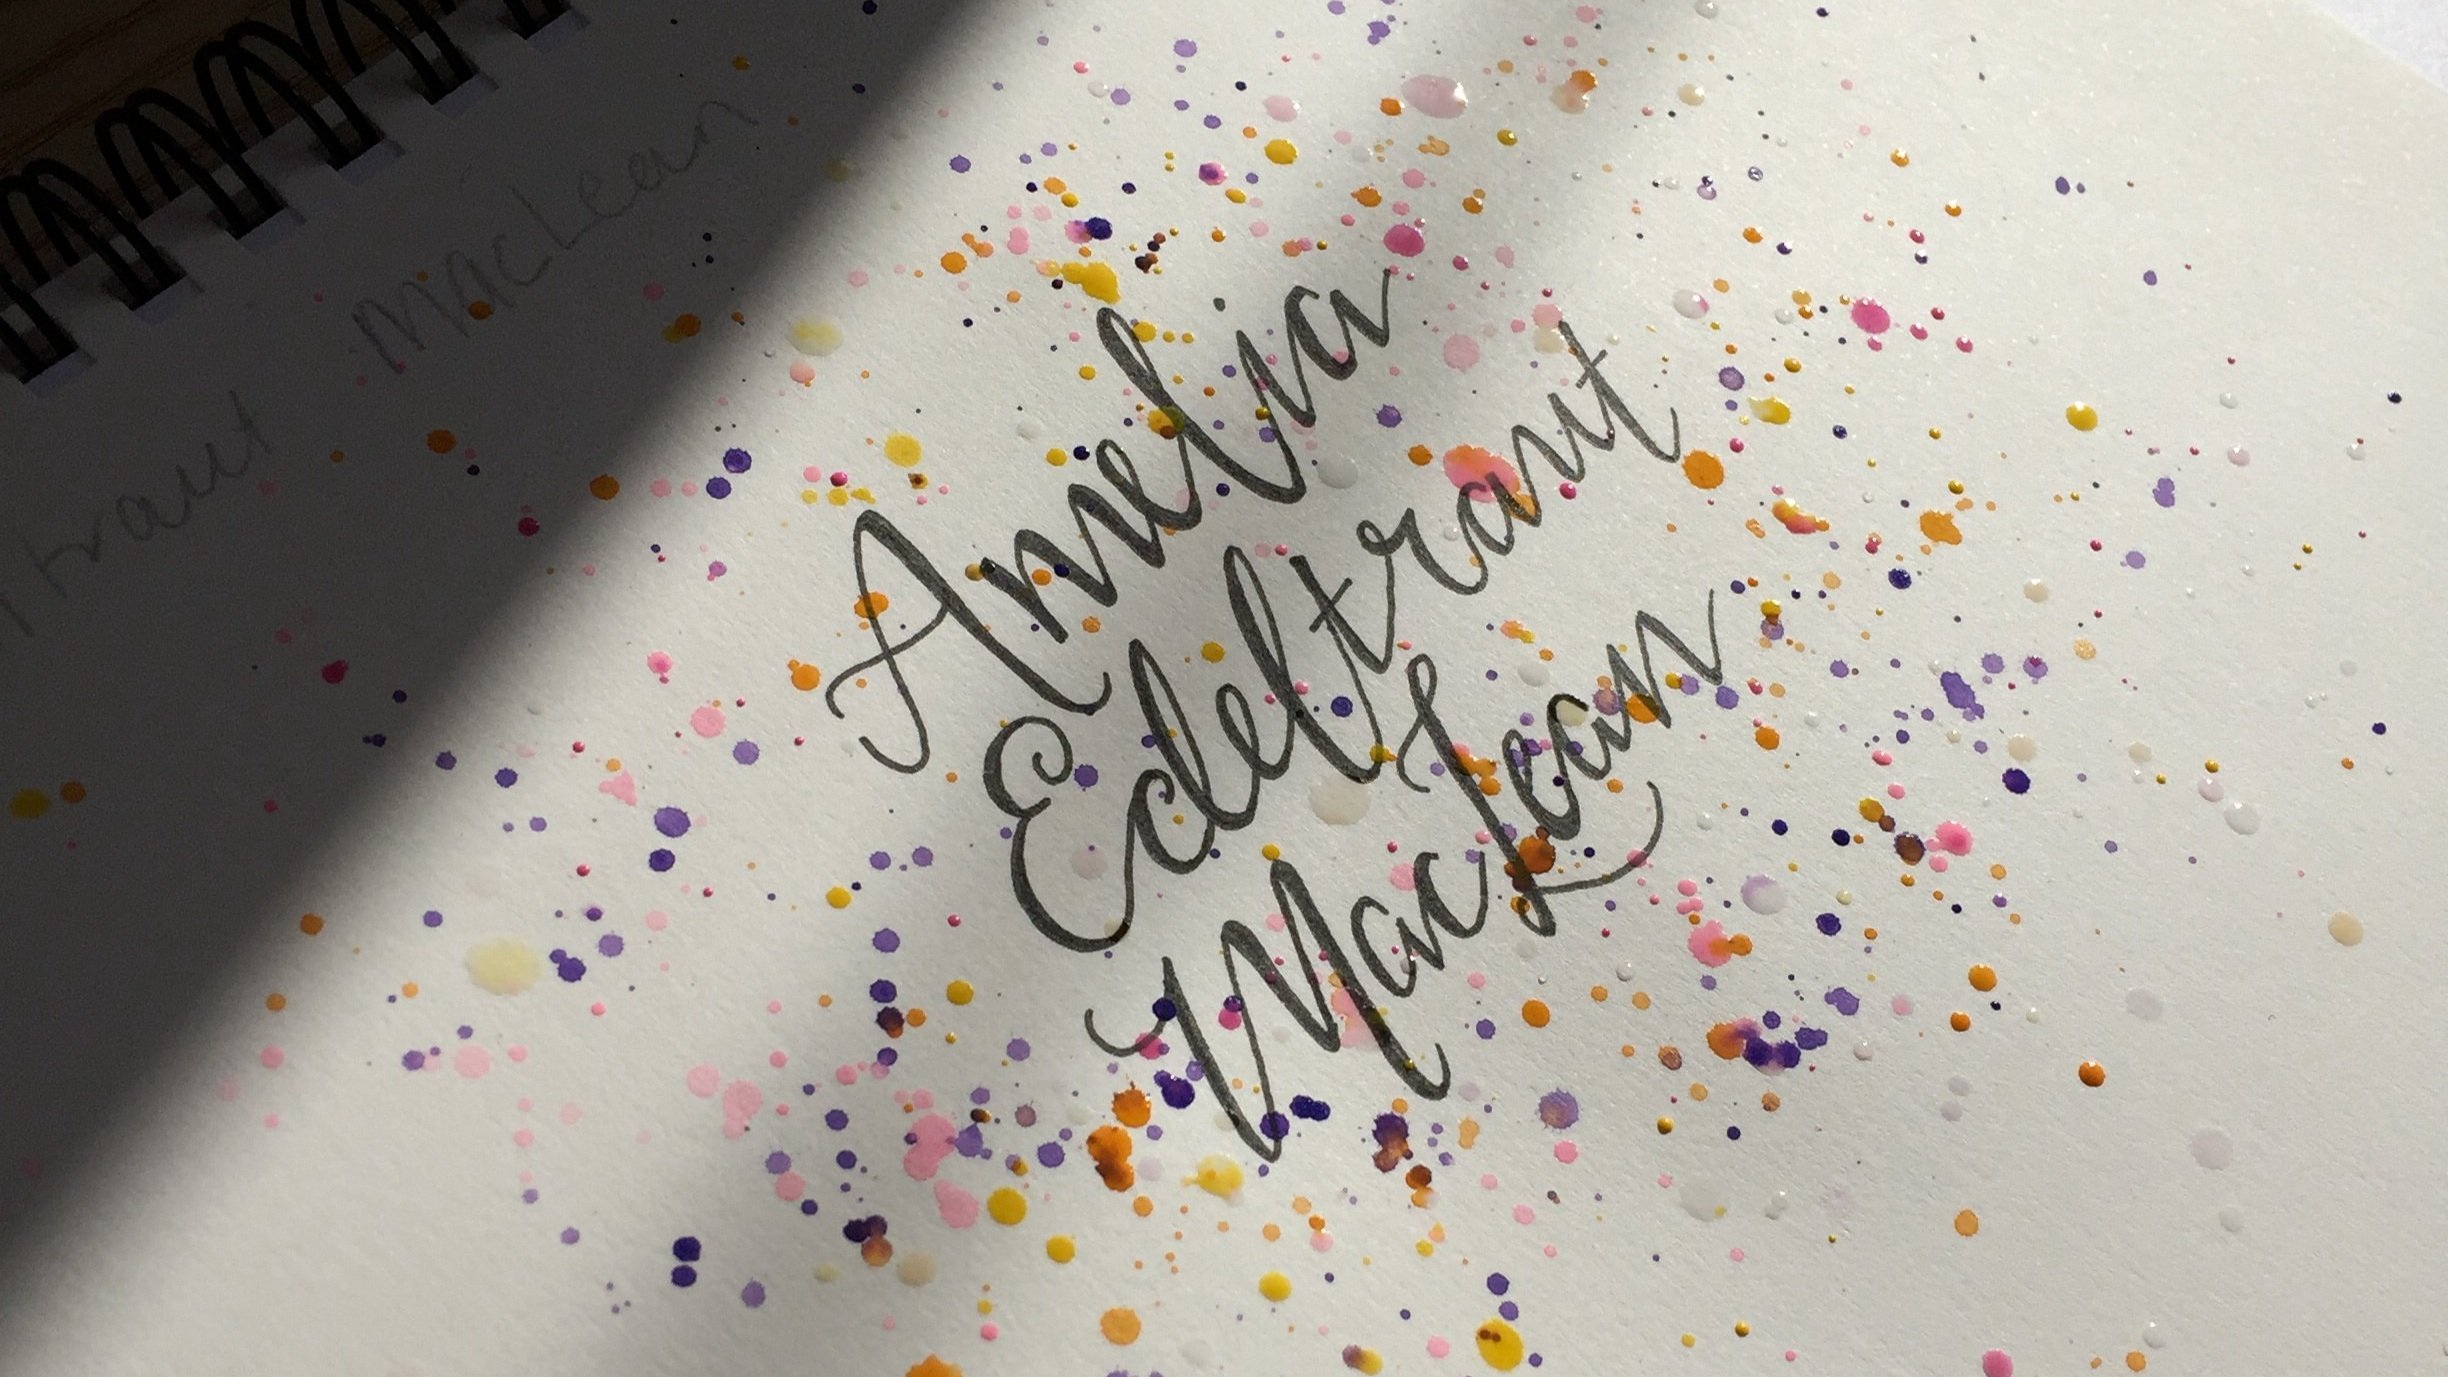 traut MacLean
Amelia
Edeltraut
MacLean